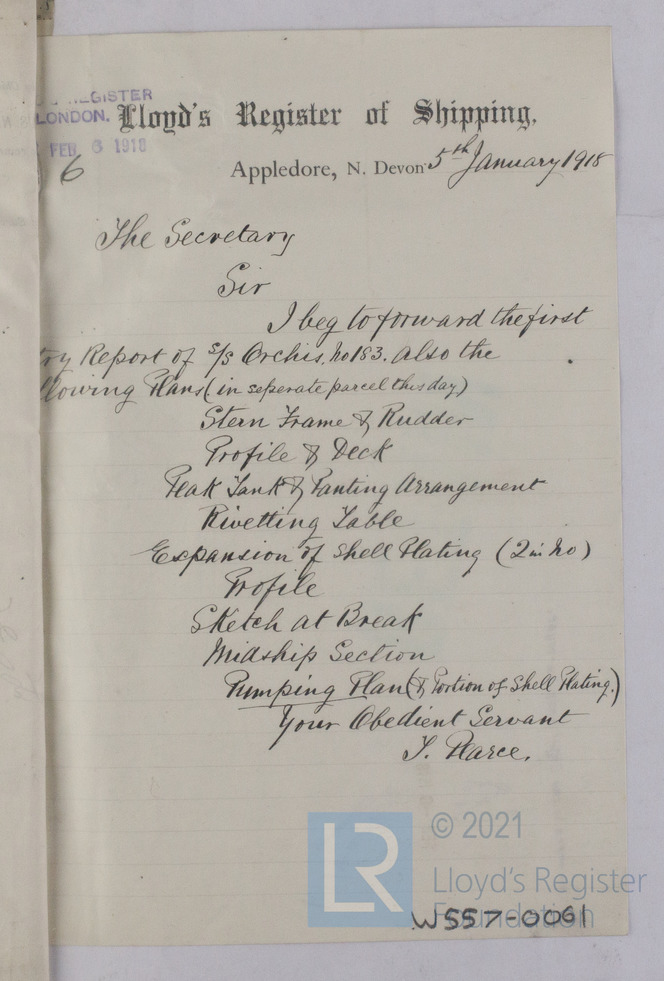 REGISTER
LONDON.
FEB 6 1918
6
Lloyd's Register of Shipping,
Appledore, N. Devon 5th January 1918
The Secretary
Sir
I beg to forward the first
try Report of S/S Orchis, No 183. Also the
llowing Plans (in seperate parcel this day)
Stern Frame & Rudder
Profile & Deck
Peak Tank & Panting Arrangement
Rivetting Table
Expansion of Shell Plating (2 in No)
Profile
Sketch at Break
Midship Section
Pumping Plan (& Portion of Shell Plating.)
Your Obedient Servant
J. Pearce.
LR
© 2021
Lloyd's Register
Foundation
W557-0061